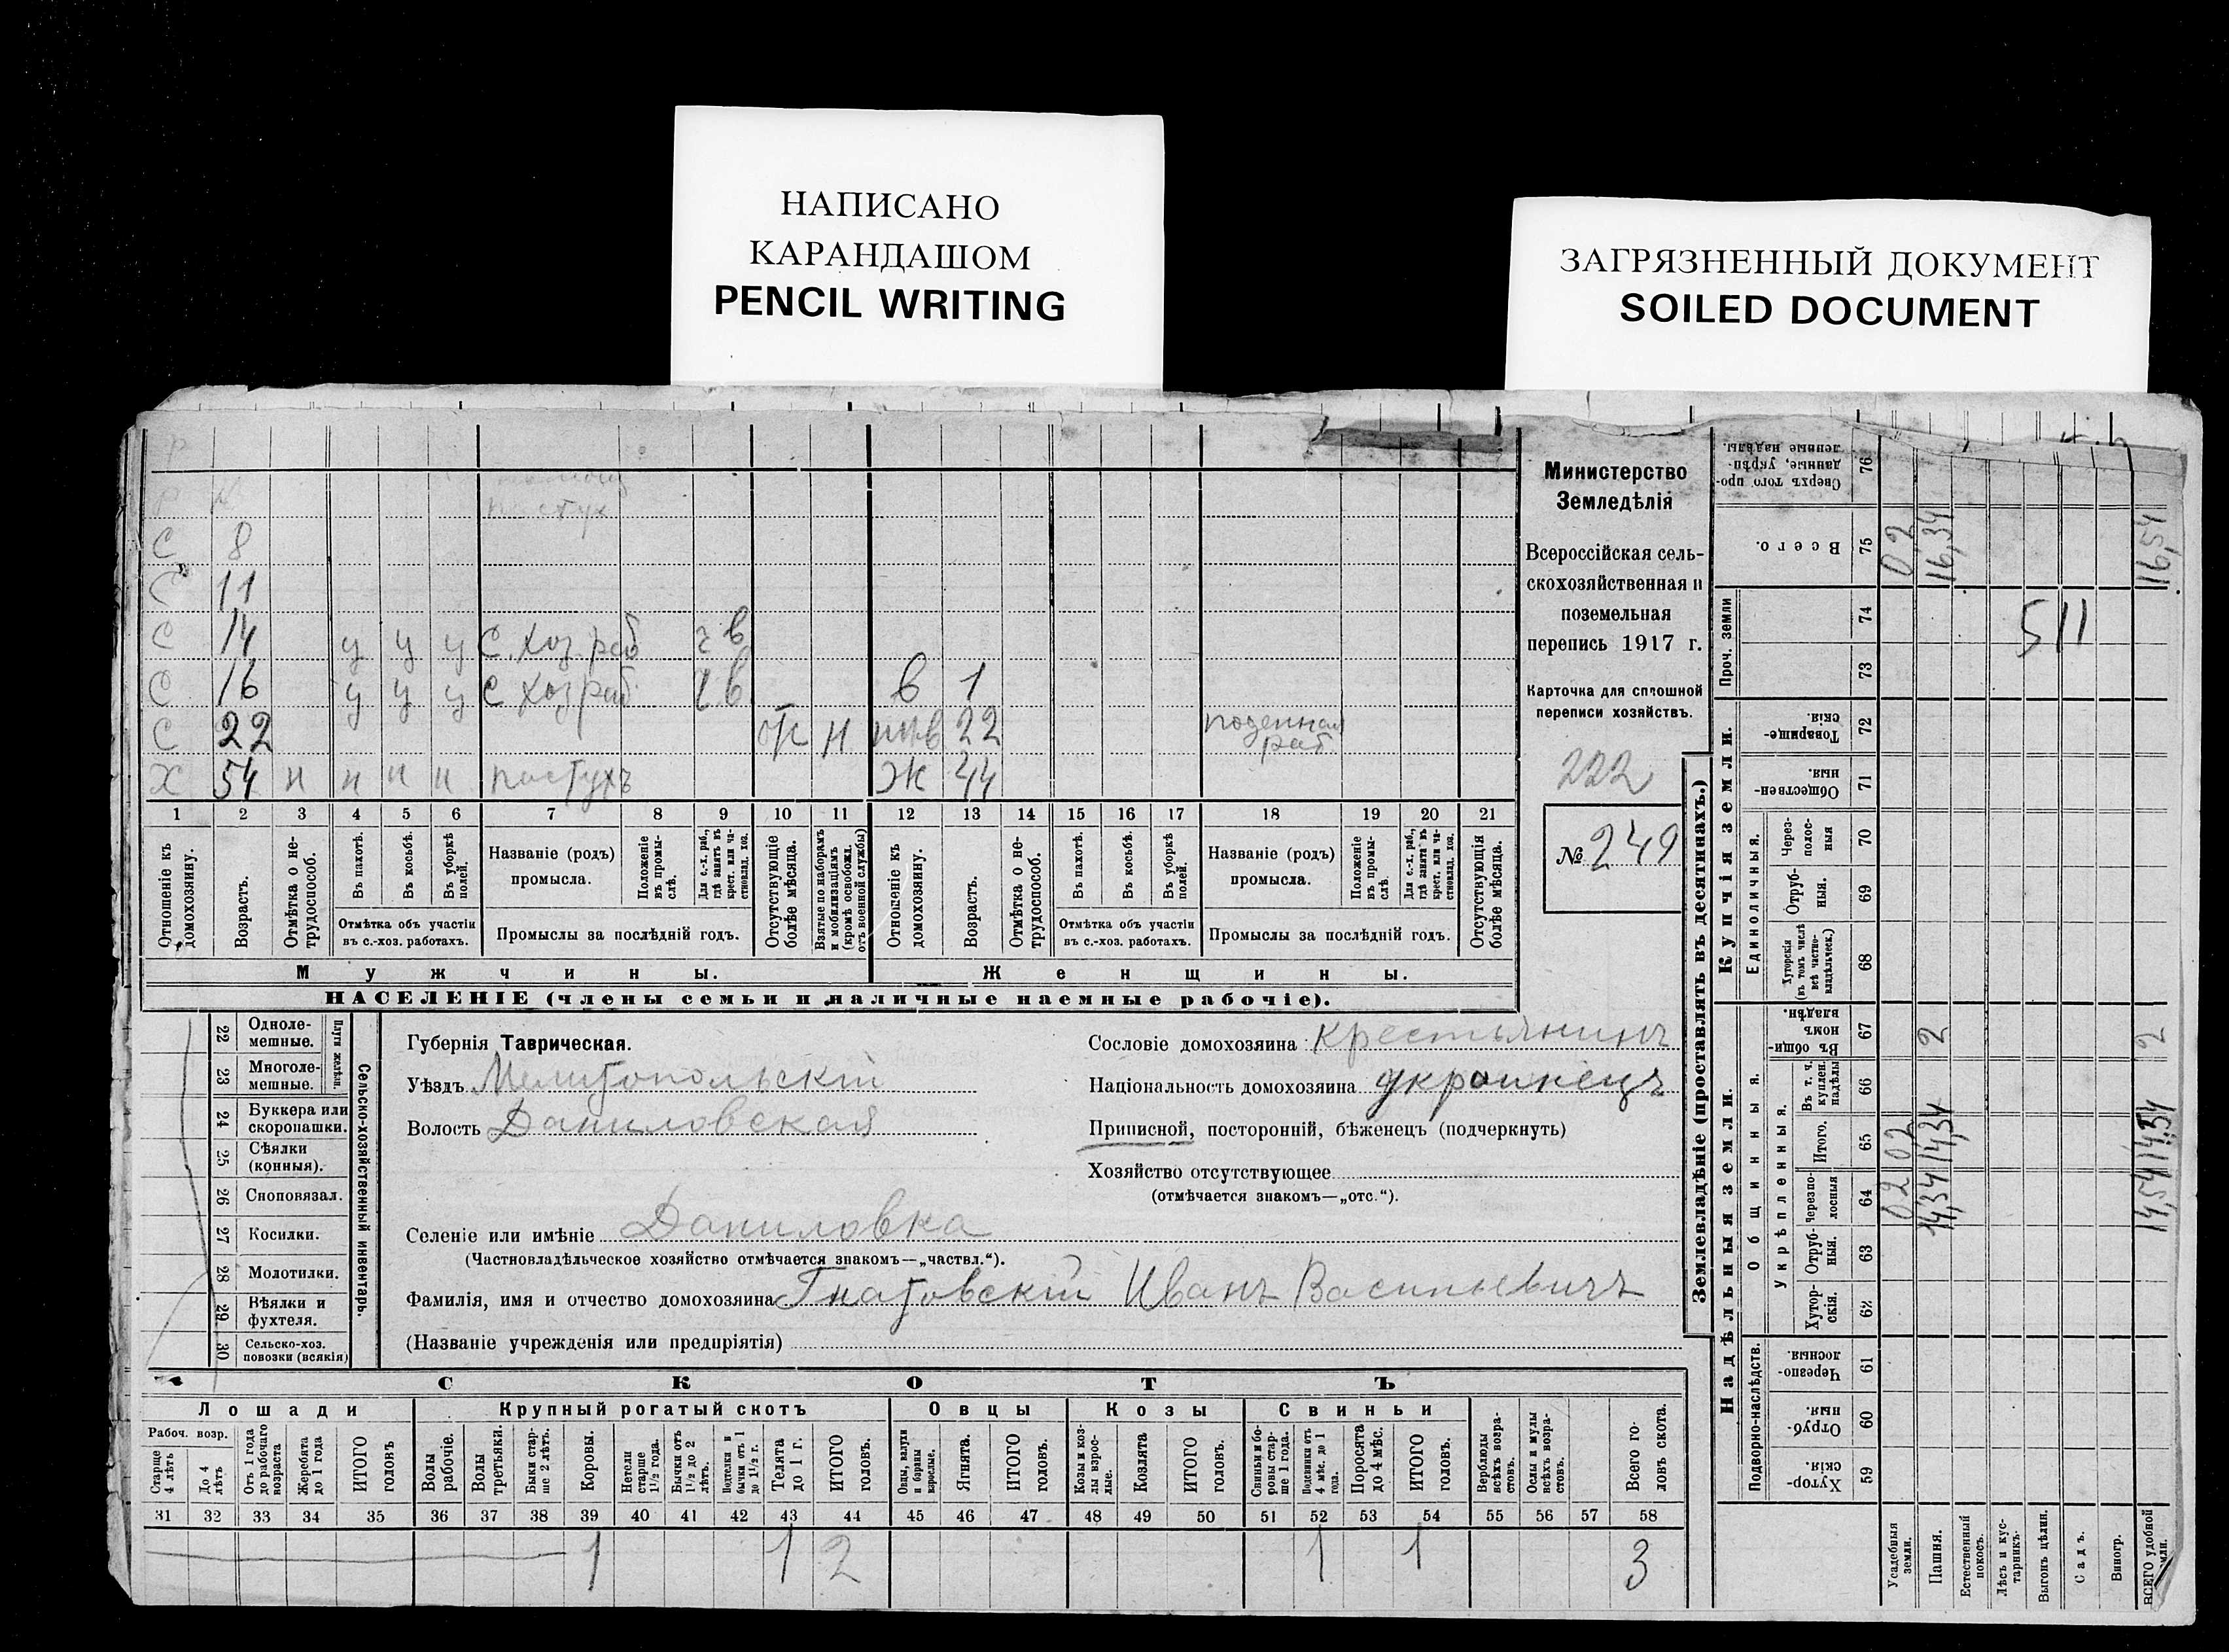 НАПИСАНО
КАРАНДАШОМ
PENCIL WRITING
ЗАГРЯЗНЕННЫЙ ДОКУМЕНТ
SOILED DOCUMENT
пастух
С 8
С 11
С 14 у у у С. хоз. раб
С 16 у у у С хоз раб в 1
С 22 от н 22 поденная раб.
Х 54 н н н н пастухъ Ж 44
1 2 3 4 5 6 7 8 9 10 11 12 13 14 15 16 17 18 19 20 21
Отношеніе къ домохозяину.
Возрастъ.
Отмѣтка о нетрудоспособ.
Въ пахотѣ.
Въ косьбѣ.
Въ уборкѣ полей.
Отмѣтка объ участіи
въ с.-хоз. работахъ.
Названіе (родъ)
промысла.
Положеніе въ промыслѣ.
Для с.-х. раб., гдѣ занятъ въ крест. или частновлад. хоз.
Промыслы за послѣдній годъ.
Отсутствующіе болѣе мѣсяца.
Взятые по наборамъ и мобилизаціямъ (кромѣ освобожд. отъ военной службы)
Отношеніе къ домохозяину.
Возрастъ.
Отмѣтка о нетрудоспособ.
Въ пахотѣ.
Въ косьбѣ.
Въ уборкѣ полей.
Отмѣтка объ участіи
въ с.-хоз. работахъ.
Названіе (родъ)
промысла.
Положеніе въ промыслѣ.
Для с.-х. раб., гдѣ занята въ крест. или частновлад. хоз.
Промыслы за послѣдній годъ.
Отсутствующія болѣе мѣсяца.
Мужчины.
Женщины.
НАСЕЛЕНІЕ (члены семьи и наличные наемные рабочіе).
Министерство
Земледѣлія
Всероссійская сель-
скохозяйственная и
поземельная
перепись 1917 г.
Карточка для сплошной
переписи хозяйствъ.
222
№ 249
22 Одноле-
мешные.
23 Многоле-
мешные.
Плуги желѣзн.
24 Буккера или
скоропашки.
25 Сѣялки
(конныя).
26 Сноповязал.
27 Косилки.
28 Молотилки.
29 Вѣялки и
фухтеля.
30 Сельско-хоз.
повозки (всякія)
Сельско-хозяйственный инвентарь.
Губернія Таврическая.
Уѣздъ Мелитопольскій
Волость Даниловская
Селеніе или имѣніе Даниловка
(Частновладѣльческое хозяйство отмѣчается знакомъ—„частвл.“).
Фамилія, имя и отчество домохозяина Гнатовскій Иванъ Васильевичъ
(Названіе учрежденія или предпріятія)
Сословіе домохозяина крестьянинъ
Національность домохозяина украинецъ
Приписной, посторонній, бѣженецъ (подчеркнуть)
Хозяйство отсутствующее
(отмѣчается знакомъ—„отс.“).
СКОТЪ
Лошади
Крупный рогатый скотъ
Овцы
Козы
Свиньи
Рабоч. возр.
Старше 4 лѣтъ
До 4 лѣтъ
Отъ 1 года до рабочаго возраста
Жеребята до 1 года
ИТОГО головъ
Волы рабочіе.
Волы третьяки.
Быки старше 2 лѣтъ.
Коровы.
Нетели старше 1½ года.
Бычки отъ 1½ до 2 лѣтъ.
Подтелки и бычки отъ 1 до 1½ г.
Телята до 1 г.
ИТОГО головъ.
Овцы, валухи и бараны взрослые.
Ягнята.
ИТОГО головъ.
Козы и козлы взрослые.
Козлята
ИТОГО головъ.
Свиньи и боровы старше 1 года.
Подсвинки отъ 4 мѣс. до 1 года.
Поросята до 4 мѣс.
ИТОГО головъ.
Верблюды всѣхъ возрастовъ.
Ослы и мулы всѣхъ возрастовъ.
Всего головъ скота.
31 32 33 34 35 36 37 38 39 40 41 42 43 44 45 46 47 48 49 50 51 52 53 54 55 56 57 58
1 1 2 1 1 3
Землевладѣніе (проставлять въ десятинахъ.)
Купчія земли.
Надѣльныя земли.
Проч. земли
Сверхъ того проданные, укрѣпленные надѣлы. 76
Всего. 75 02 16,34 16,54
74 511
73
Товарищескія. 72
Общественныя. 71
Единоличныя.
Черезполосныя 70
Отрубныя. 69
Хуторскія (въ томъ числѣ всѣ частновладѣльческ.) 68
Общинныя.
Въ общинномъ владѣн. 67 2 2
Укрѣпленныя.
Въ т. ч. куплен. надѣлы 66
Итого. 65 02 14,34 14,54
Черезполосныя 64 02 14,34 14,54
Отрубныя. 63
Хуторскія. 62
Подворно-наслѣдств.
Черезполосныя. 61
Отрубныя. 60
Хуторскія. 59
Усадебныя земли.
Пашня.
Естественный покосъ.
Лѣсъ и кустарникъ.
Выгонъ цѣлин.
Садъ.
Виногр.
ВСЕГО удобной земли.